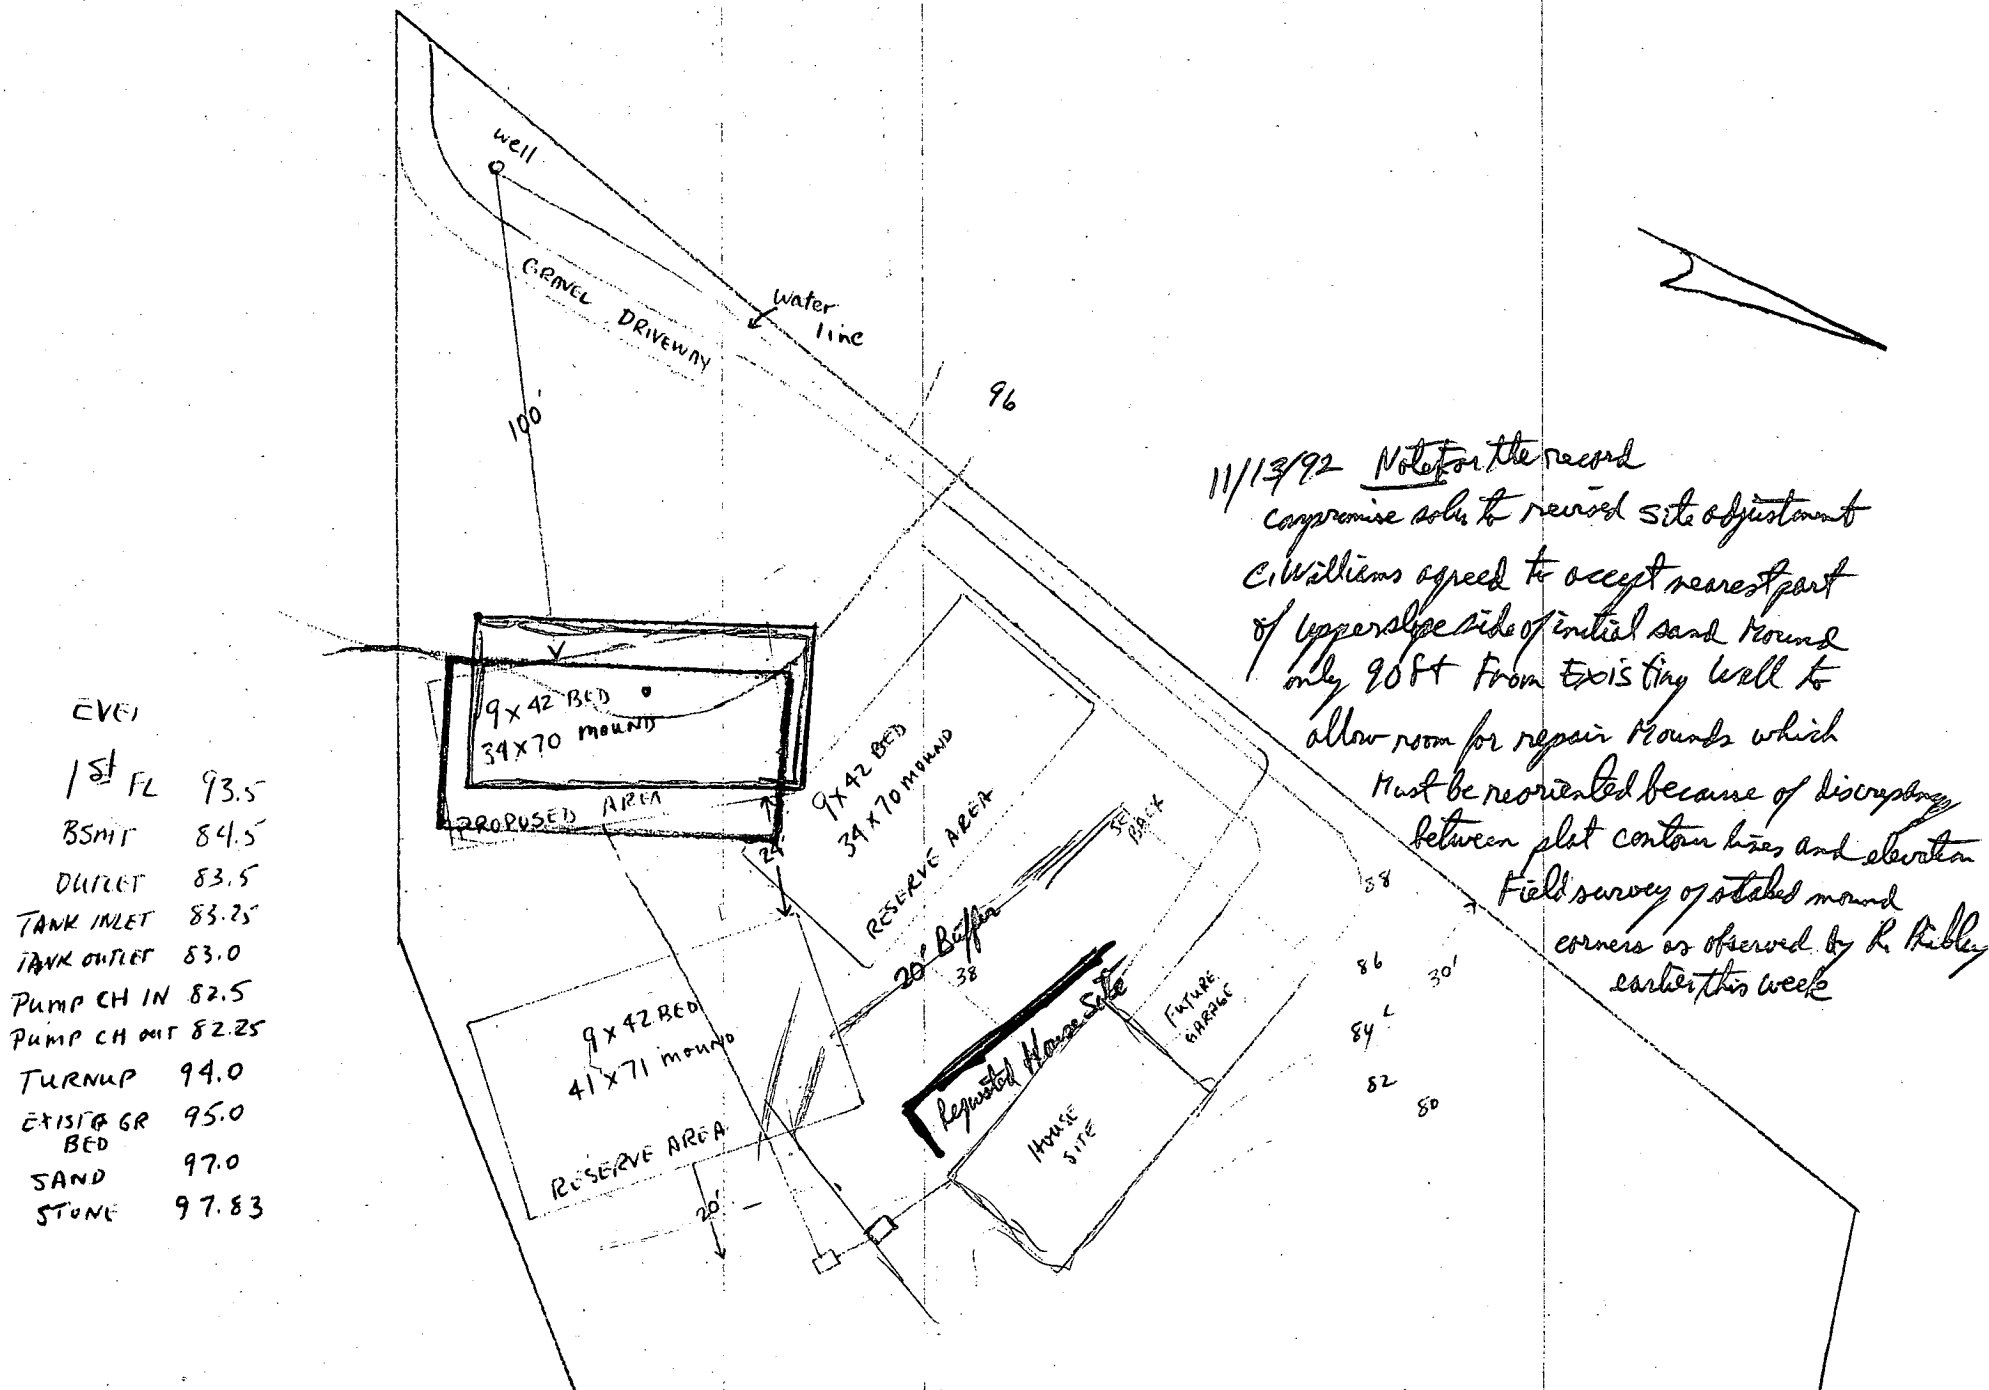 well
GRAVEL DRIVEWAY
water
line
100'
96
11/13/92 Note for the record
compromise soln to revised site adjustment
C. Williams agreed to accept nearest part
of upperslope side of initial sand mound
only 90 ft From Existing well to
allow room for repair mounds which
Must be reoriented because of discrepancy
between plat contour lines and elevation
Field survey of staked mound
corners as observed by R.
earlier this week
9 x 42 BED
34 x 70 MOUND
PROPOSED AREA
24'
9 x 42 BED
34 x 70 MOUND
RESERVE AREA
SET
BACK
20' Buffer
38
Requested House Site
FUTURE
GARAGE
HOUSE
SITE
88
86
30'
84
82
80
9 x 42 BED
41 x 71 mound
RESERVE AREA
20'
1st FL 93.5
BSMT 84.5
OUTLET 83.5
TANK INLET 83.25
TANK OUTLET 83.0
Pump CH IN 82.5
Pump CH OUT 82.25
TURNUP 94.0
EXISTG GR 95.0
BED
SAND 97.0
STONE 97.83